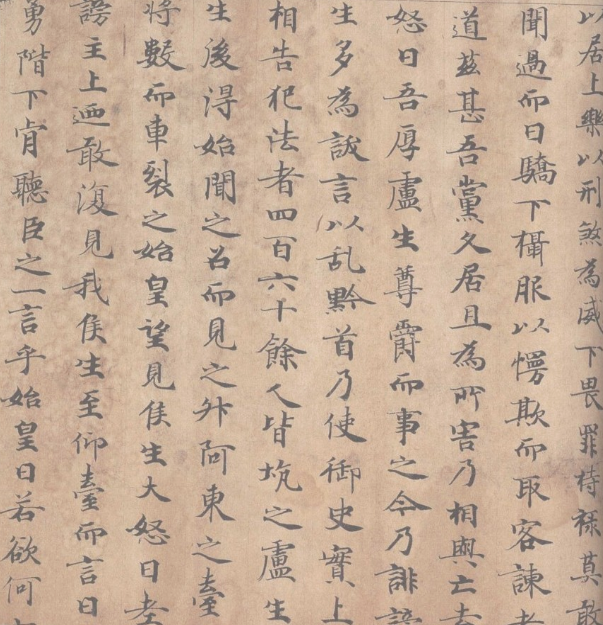 以居上樂以刑煞為威下畏罪持祿莫敢
聞過而日驕下懾服以慢欺而取容諫者
道茲甚吾黨久居且為所害乃相與亡去
怒曰吾厚盧生尊爵而事之今乃誹謗
生多為訞言以乱黔首乃使御史實上
相告犯法者四百六十餘人皆坑之盧生
生後得始聞之召而見之升阿東之臺
將數而車裂之始皇望見侯生大怒曰老
謗主上迺敢復見我侯生至仰臺而言曰
勇陛下肯聽臣之一言乎始皇曰若欲何